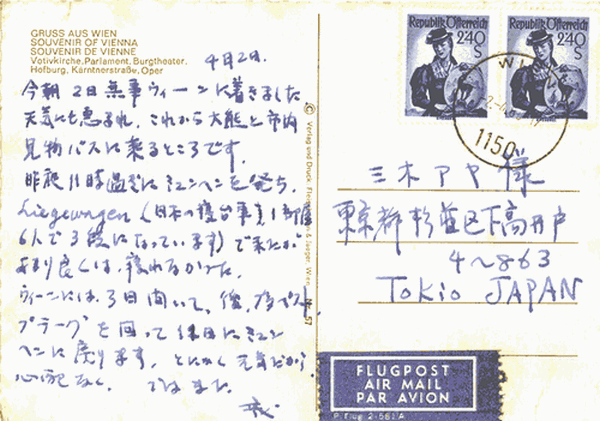 GRUSS AUS WIEN
SOUVENIR OF VIENNA
SOUVENIR DE VIENNE
Votivkirche, Parlament, Burgtheater,
Hofburg, Kärntnerstraße, Oper
4月2日.
今朝2日無事ウィーンに着きました
天気にも恵まれ、これから大熊と市内
見物バスに乗るところです.
昨晩11時過ぎにミュンヘンを発ち、
Liegewagen (日本の寝台車 1部屋
6人で3段になっています) で来たが
あまり良くは、寝れなかった.
ウィーンには、3日間いて、後、ブダペスト
プラーグを回って 日にミュン
ヘンに戻ります. とにかく元気だから
心配なく. ではまた.
Republik Österreich
2.40
S
Republik Österreich
2.40
S
WI
1150
三木アヤ様
東京都杉並区下高井戸
4~863
TOKIO JAPAN
© Verlag und Druck:
Wien
57
FLUGPOST
AIR MAIL
PAR AVION